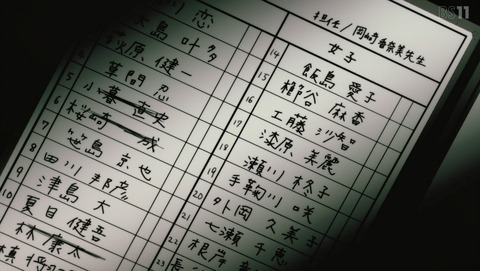 BS11
担任/岡崎香奈美先生
女子
川 恋
島 叶多
荻原 健一
草間 忍
5 小暮 直史
6 桜崎 一成
7 笹島 京也
8 田川 邦彦
9 津島 大
10 夏目 健吾
林 康太
14 飯島 愛子
15 樫谷 麻香
16 工藤 沙智
17 漆原 美麗
18 瀬川 柊子
19 手鞠川 咲
20 外岡 久美子
21 七瀬 千恵
22 根岸
23